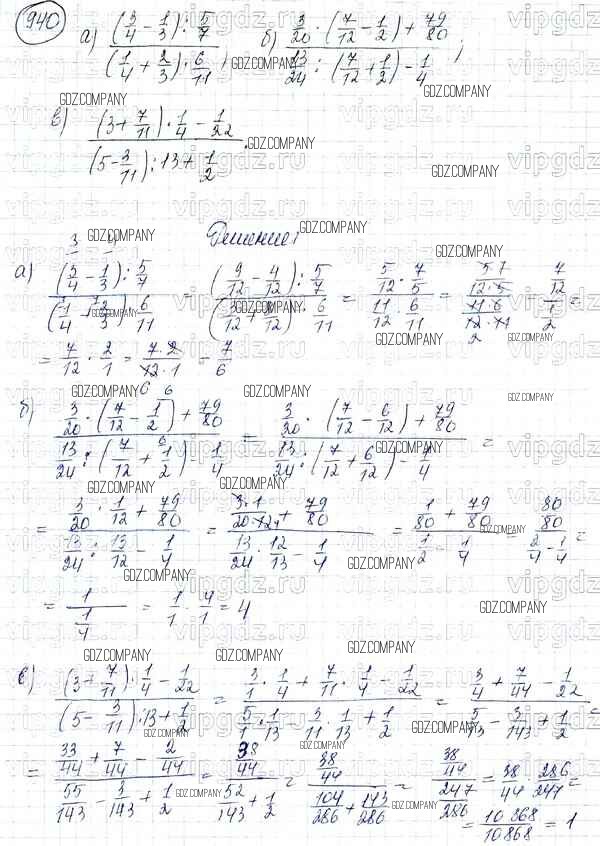 940 а) ((3/4 - 1/3) : 5/7) / ((1/4 + 2/3) · 6/11) ; б) (3/20 : (7/12 - 1/2) + 79/80) / (13/24 : (7/12 + 1/2) - 1/4) ;
в) ((3 + 7/11) · 1/4 - 1/22) / ((5 - 3/11) : 13 + 1/2) .
Решение:
а) ((3/4 - 1/3) : 5/7) / ((1/4 + 2/3) · 6/11) = ((9/12 - 4/12) : 5/7) / ((3/12 + 8/12) · 6/11) = (5/12 · 7/5) / (11/12 · 6/11) = (5·7 / 12·5) / (11·6 / 12·11) = (7/12) / (1/2) =
= 7/12 · 2/1 = 7·2 / 12·1 = 7/6
б) (3/20 · (7/12 - 1/2) + 79/80) / (13/24 : (7/12 + 1/2) - 1/4) = (3/20 · (7/12 - 6/12) + 79/80) / (13/24 : (7/12 + 6/12) - 1/4) =
= (3/20 · 1/12 + 79/80) / (13/24 : 13/12 - 1/4) = (3·1 / 20·12 + 79/80) / (13/24 · 12/13 - 1/4) = (1/80 + 79/80) / (1/2 - 1/4) = (80/80) / (2/4 - 1/4) =
= 1 / (1/4) = 1/1 · 4/1 = 4
в) ((3 + 7/11) · 1/4 - 1/22) / ((5 - 3/11) : 13 + 1/2) = (3/1 · 1/4 + 7/11 · 1/4 - 1/22) / (5/1 · 1/13 - 3/11 · 1/13 + 1/2) = (3/4 + 7/44 - 1/22) / (5/13 - 3/143 + 1/2) =
= (33/44 + 7/44 - 2/44) / (55/143 - 3/143 + 1/2) = (38/44) / (52/143 + 1/2) = (38/44) / (104/286 + 143/286) = (38/44) / (247/286) = 38/44 · 286/247 =
= 10868/10868 = 1
GDZ.COMPANY
vipgdz.ru